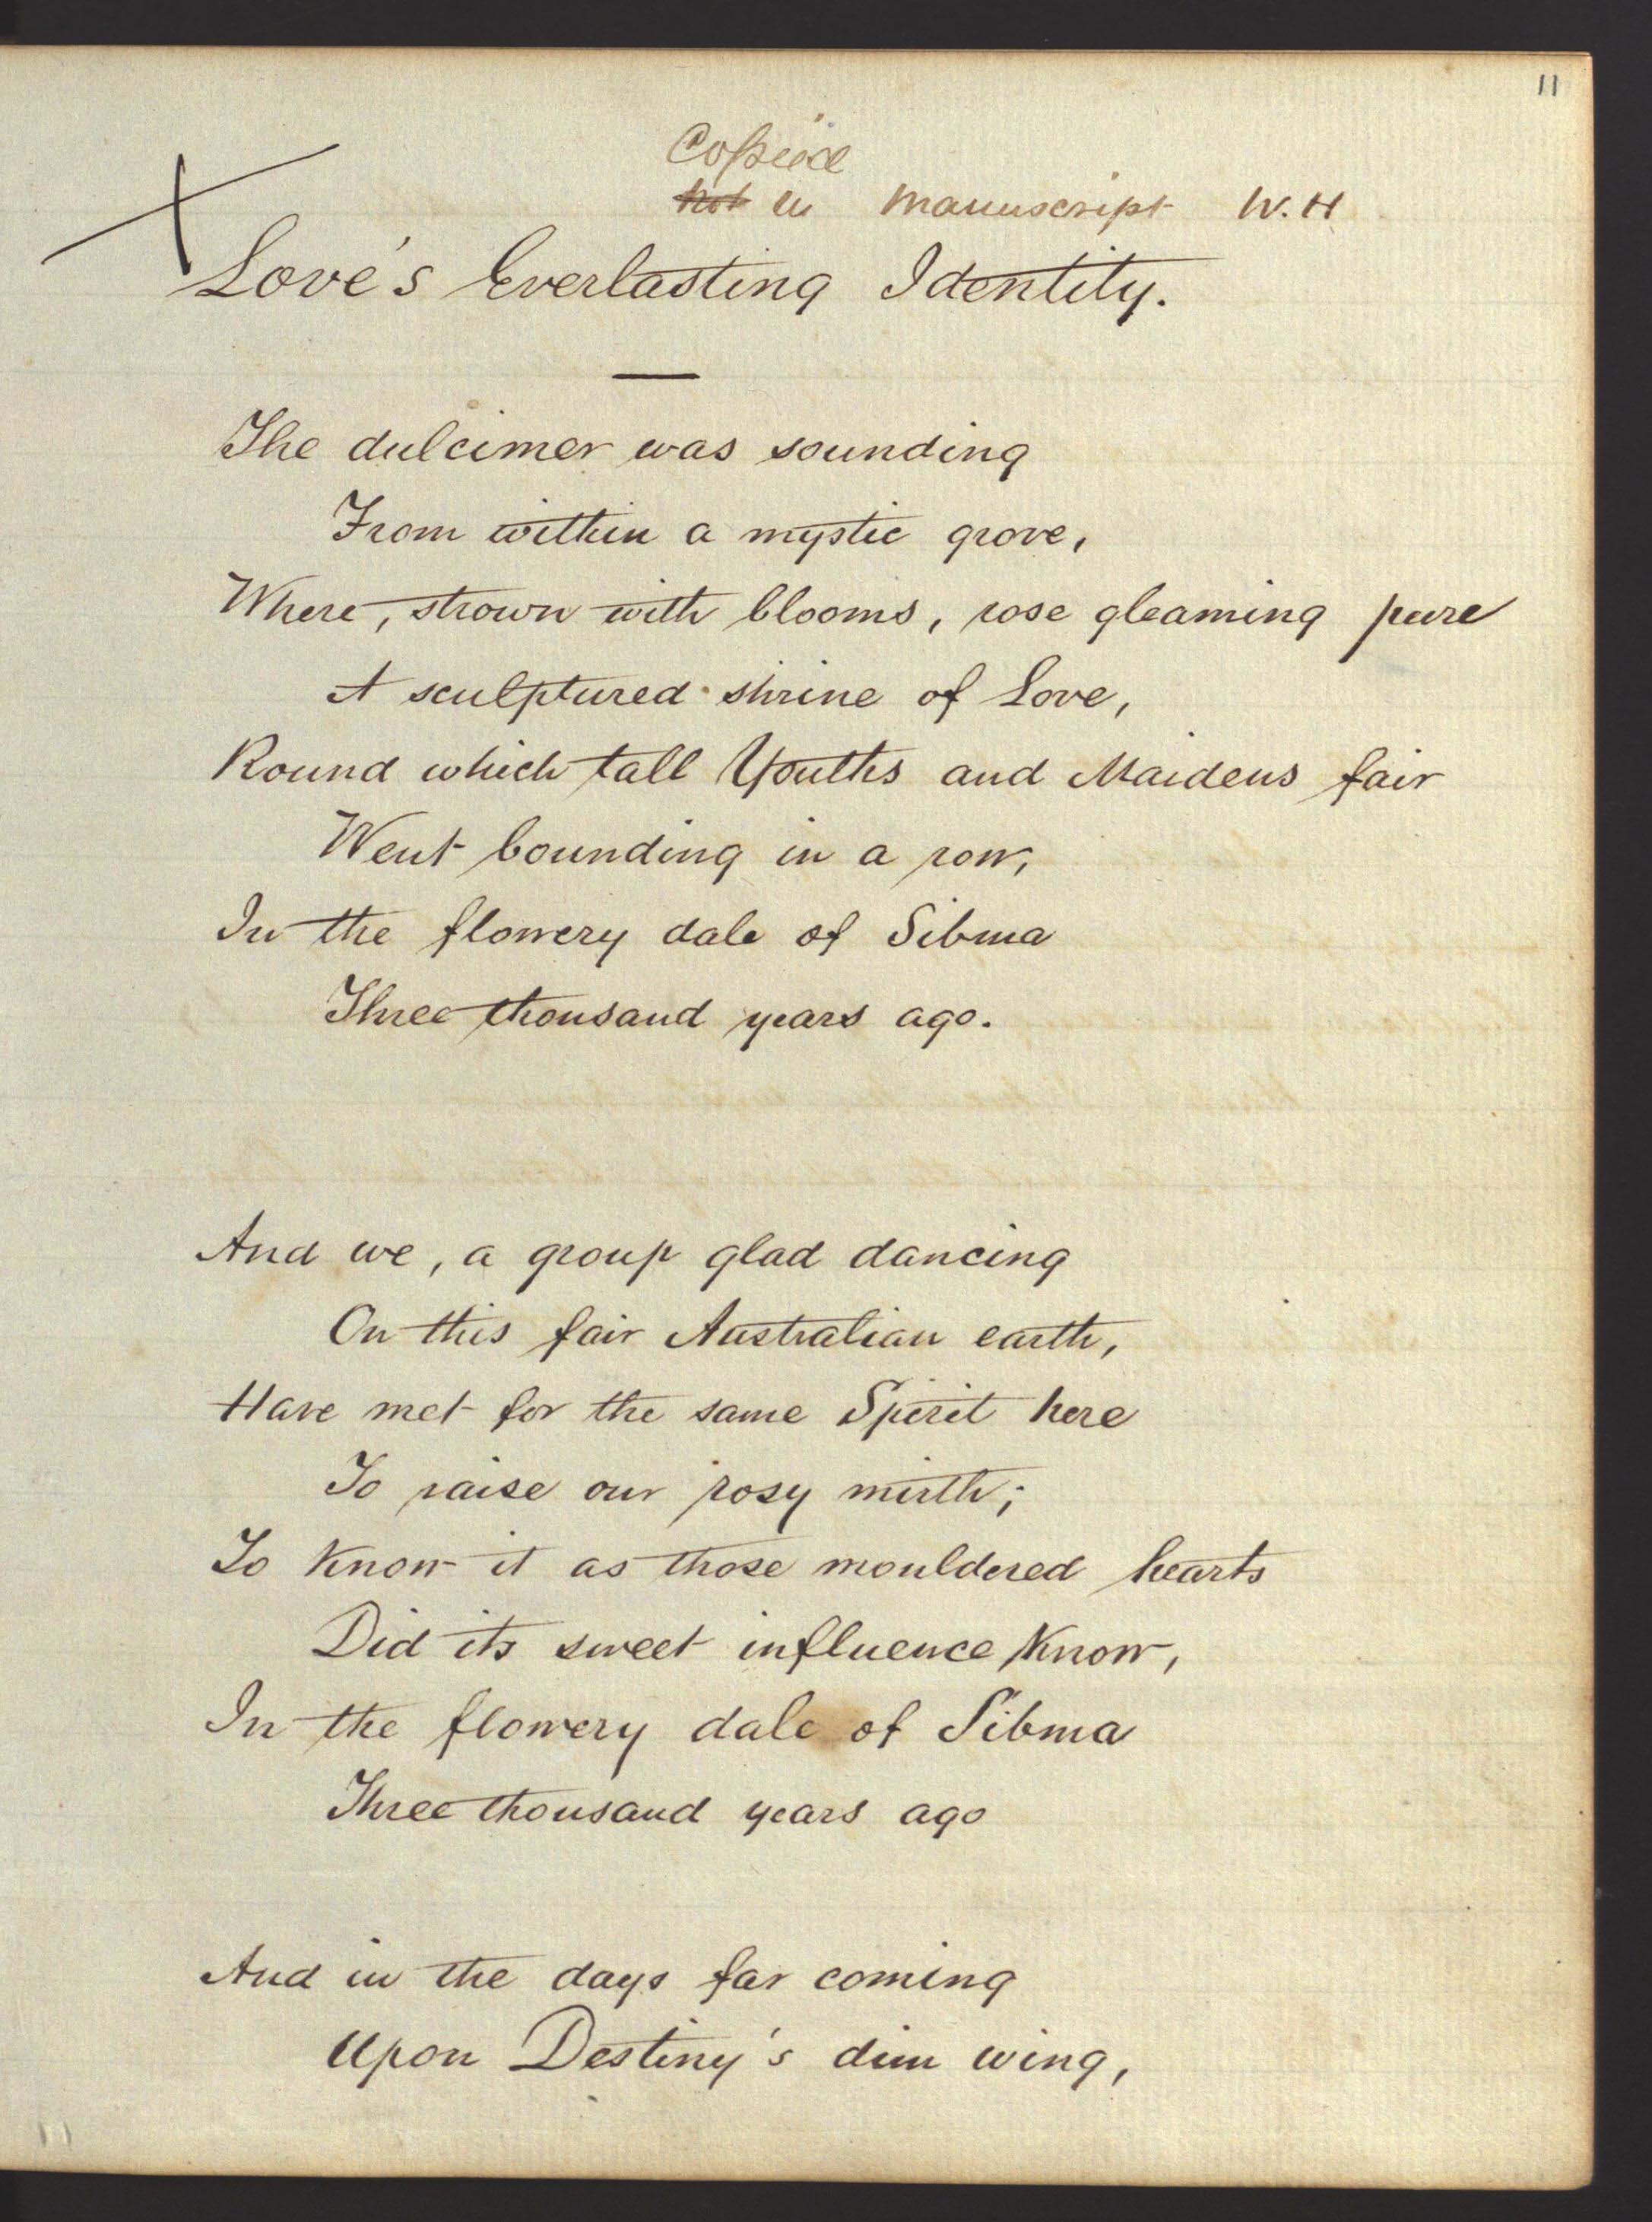 11
Copied
not in manuscript W.H
Love's Everlasting Identity.
The dulcimer was sounding
From within a mystic grove,
Where, strown with blooms, rose gleaming pure
A sculptured shrine of Love,
Round which tall Youths and Maidens fair
Went bounding in a row,
In the flowery dale of Sibma
Three thousand years ago.
And we, a group glad dancing
On this fair Australian earth,
Have met for the same Spirit here
To raise our rosy mirth;
To know it as those mouldered hearts
Did its sweet influence know,
In the flowery dale of Sibma
Three thousand years ago
And in the days far coming
Upon Destiny's dim wing,